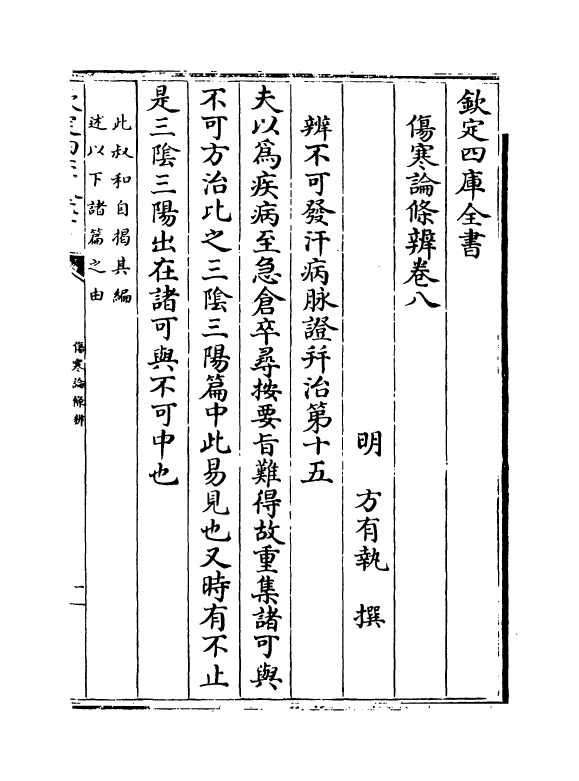 欽定四庫全書
傷寒論條辨卷八
明　方有執　撰
辨不可發汗病脉證并治第十五
夫以為疾病至急倉卒尋按要旨難得故重集諸可與
不可方治比之三陰三陽篇中此易見也又時有不止
是三陰三陽出在諸可與不可中也
此叔和自揭其編
述以下諸篇之由
傷寒論條辨